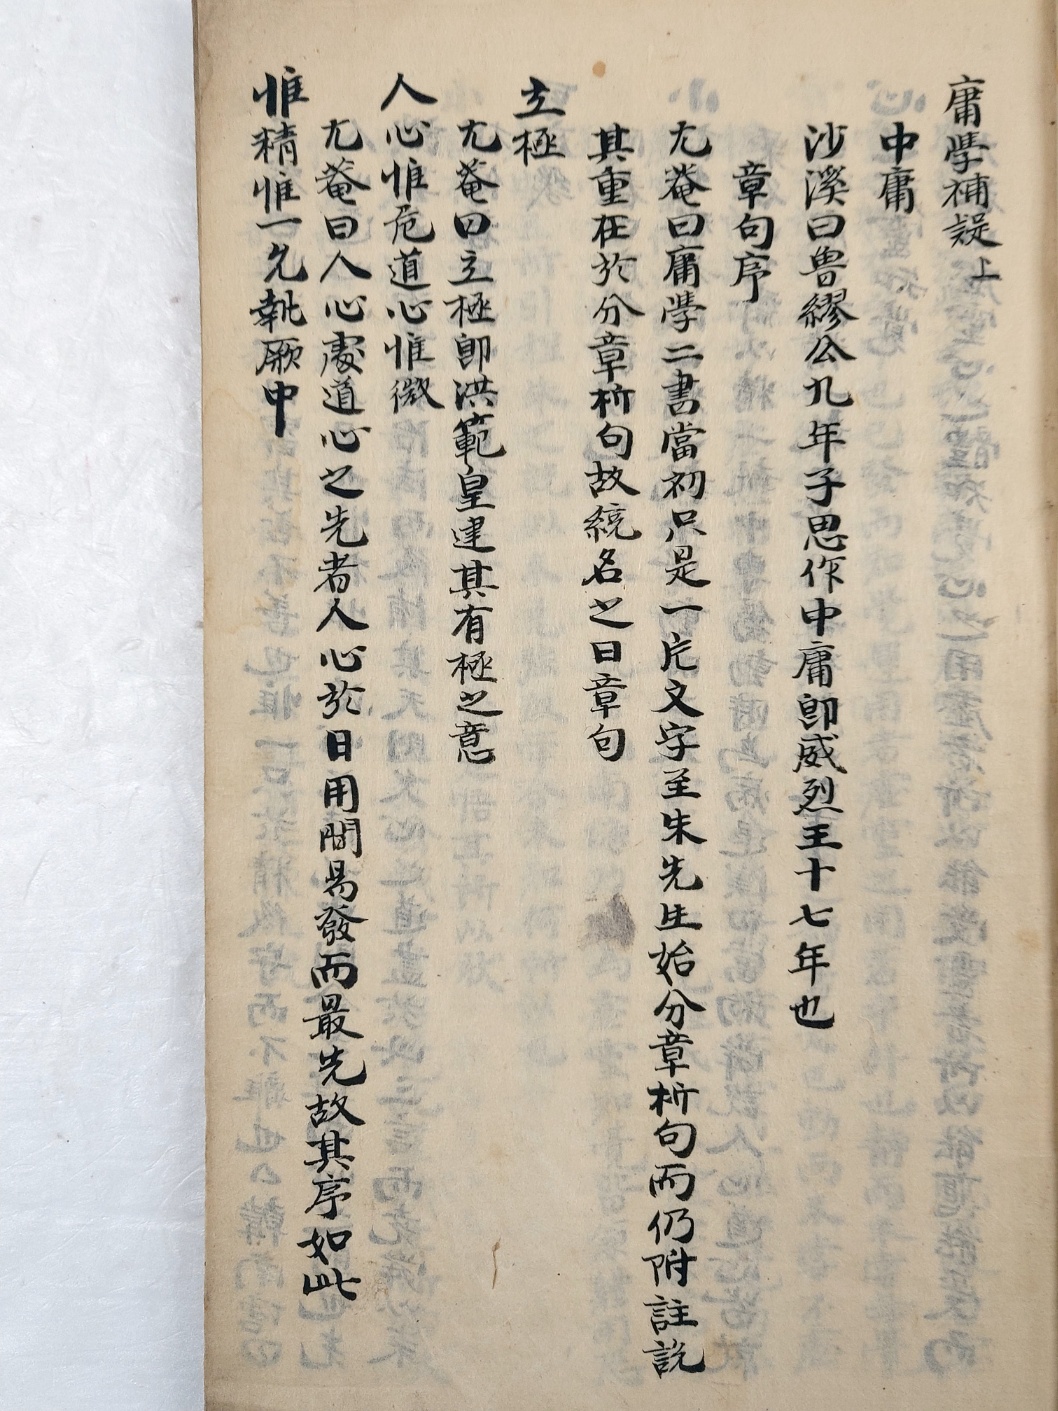 庸學補疑上
中庸
沙溪曰魯繆公九年子思作中庸卽威烈王十七年也
章句序
尤菴曰庸學二書當初只是一片文字至朱先生始分章析句而仍附註說
其重在於分章析句故統名之曰章句
立極
尤菴曰立極卽洪範皇建其有極之意
人心惟危道心惟微
尤菴曰人心處道心之先者人心於日用間易發而最先故其序如此
惟精惟一允執厥中